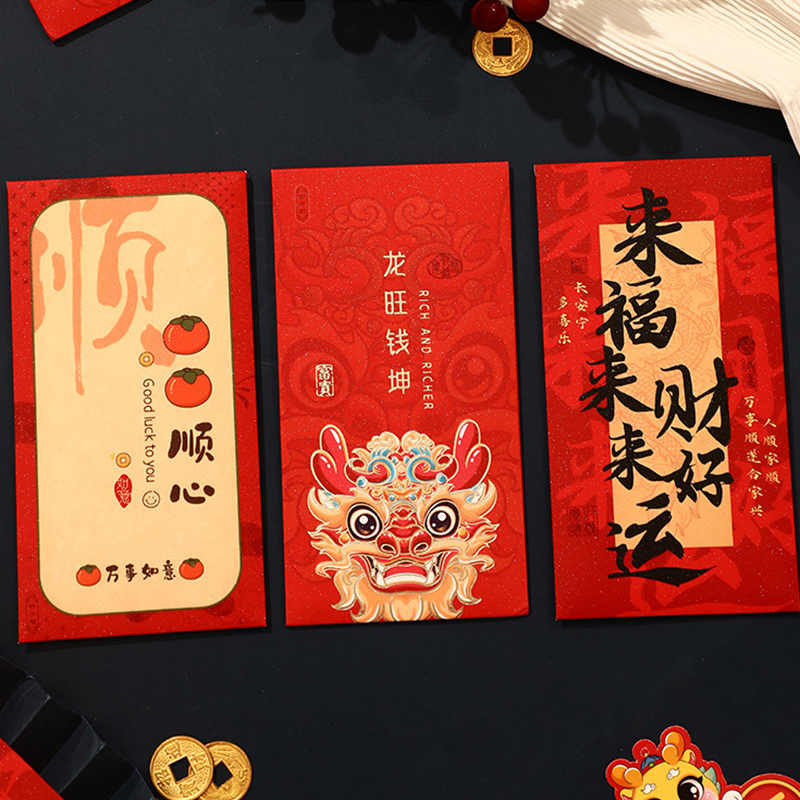 顺
顺心
Good luck to you
万事如意
龙旺钱坤
RICH AND RICHER
富贵
来福来财
来好运
长安宁
多喜乐
人顺家顺
万事顺遂合家兴